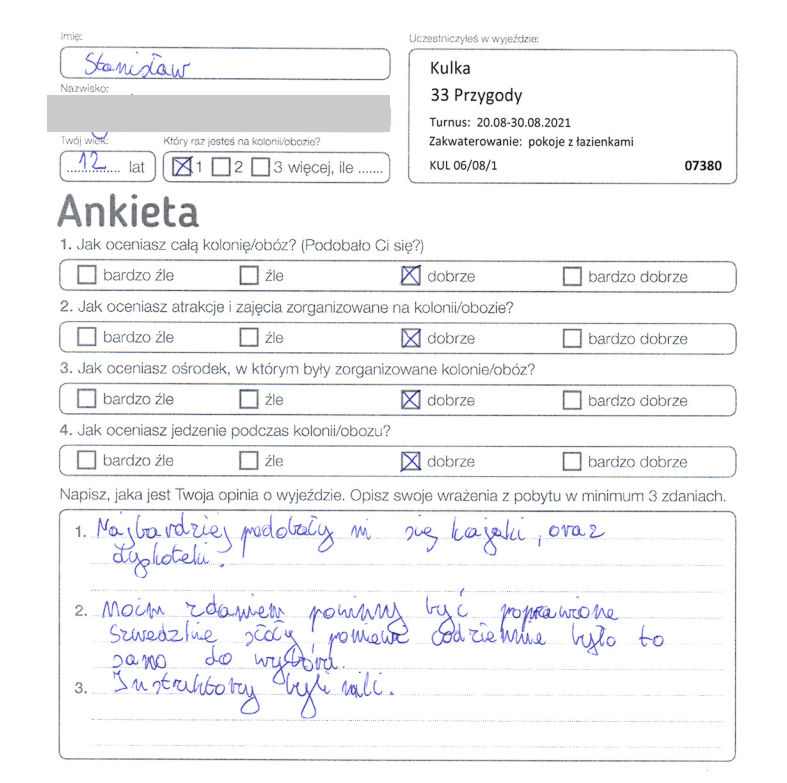 Imię:
Stanisław
Nazwisko:
Twój wiek:
12 lat
Który raz jesteś na kolonii/obozie?
1 2 3 więcej, ile .......
Uczestniczyłeś w wyjeździe:
Kulka
33 Przygody
Turnus: 20.08-30.08.2021
Zakwaterowanie: pokoje z łazienkami
KUL 06/08/1 07380
Ankieta
1. Jak oceniasz całą kolonię/obóz? (Podobało Ci się?)
bardzo źle źle dobrze bardzo dobrze
2. Jak oceniasz atrakcje i zajęcia zorganizowane na kolonii/obozie?
bardzo źle źle dobrze bardzo dobrze
3. Jak oceniasz ośrodek, w którym były zorganizowane kolonie/obóz?
bardzo źle źle dobrze bardzo dobrze
4. Jak oceniasz jedzenie podczas kolonii/obozu?
bardzo źle źle dobrze bardzo dobrze
Napisz, jaka jest Twoja opinia o wyjeździe. Opisz swoje wrażenia z pobytu w minimum 3 zdaniach.
1. Najbardziej podobały mi się kajaki, oraz
dyskoteki.
2. Moim zdaniem powinny być poprawione
szwedzkie stoły ponieważ codziennie było to
samo do wyboru.
3. Instruktorzy byli mili.